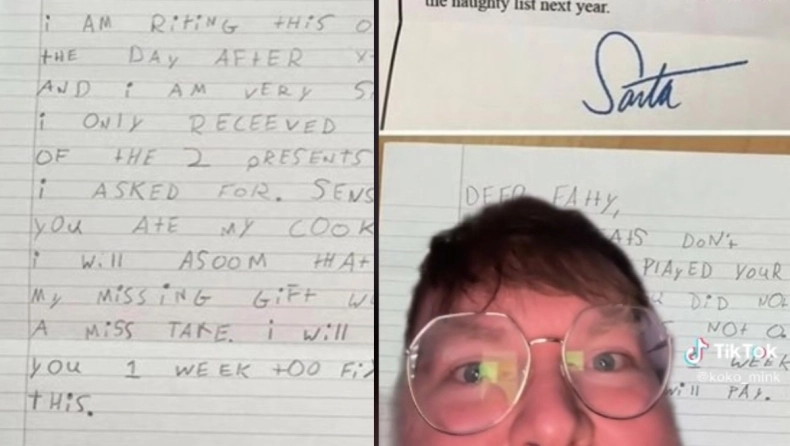 i AM RiTiNG tHiS O
tHE DAy AFtER X
AND i AM VERY S
i ONly RECEEVED
OF tHE 2 PRESENTS
i ASKED FOR. SENS
yOu AtE My COOK
i Will ASOOM tHAt
My MiSSiNG GiFt W
A MiSS TAKE. i Will
yOu 1 WEEK tOO Fi
tHiS.
the naughty list next year.
Santa
FAttY,
DON't
PlAyED YOUR
DiD NOt
NOt
1 WEEK
will PAY.
TikTok
@koko_mink